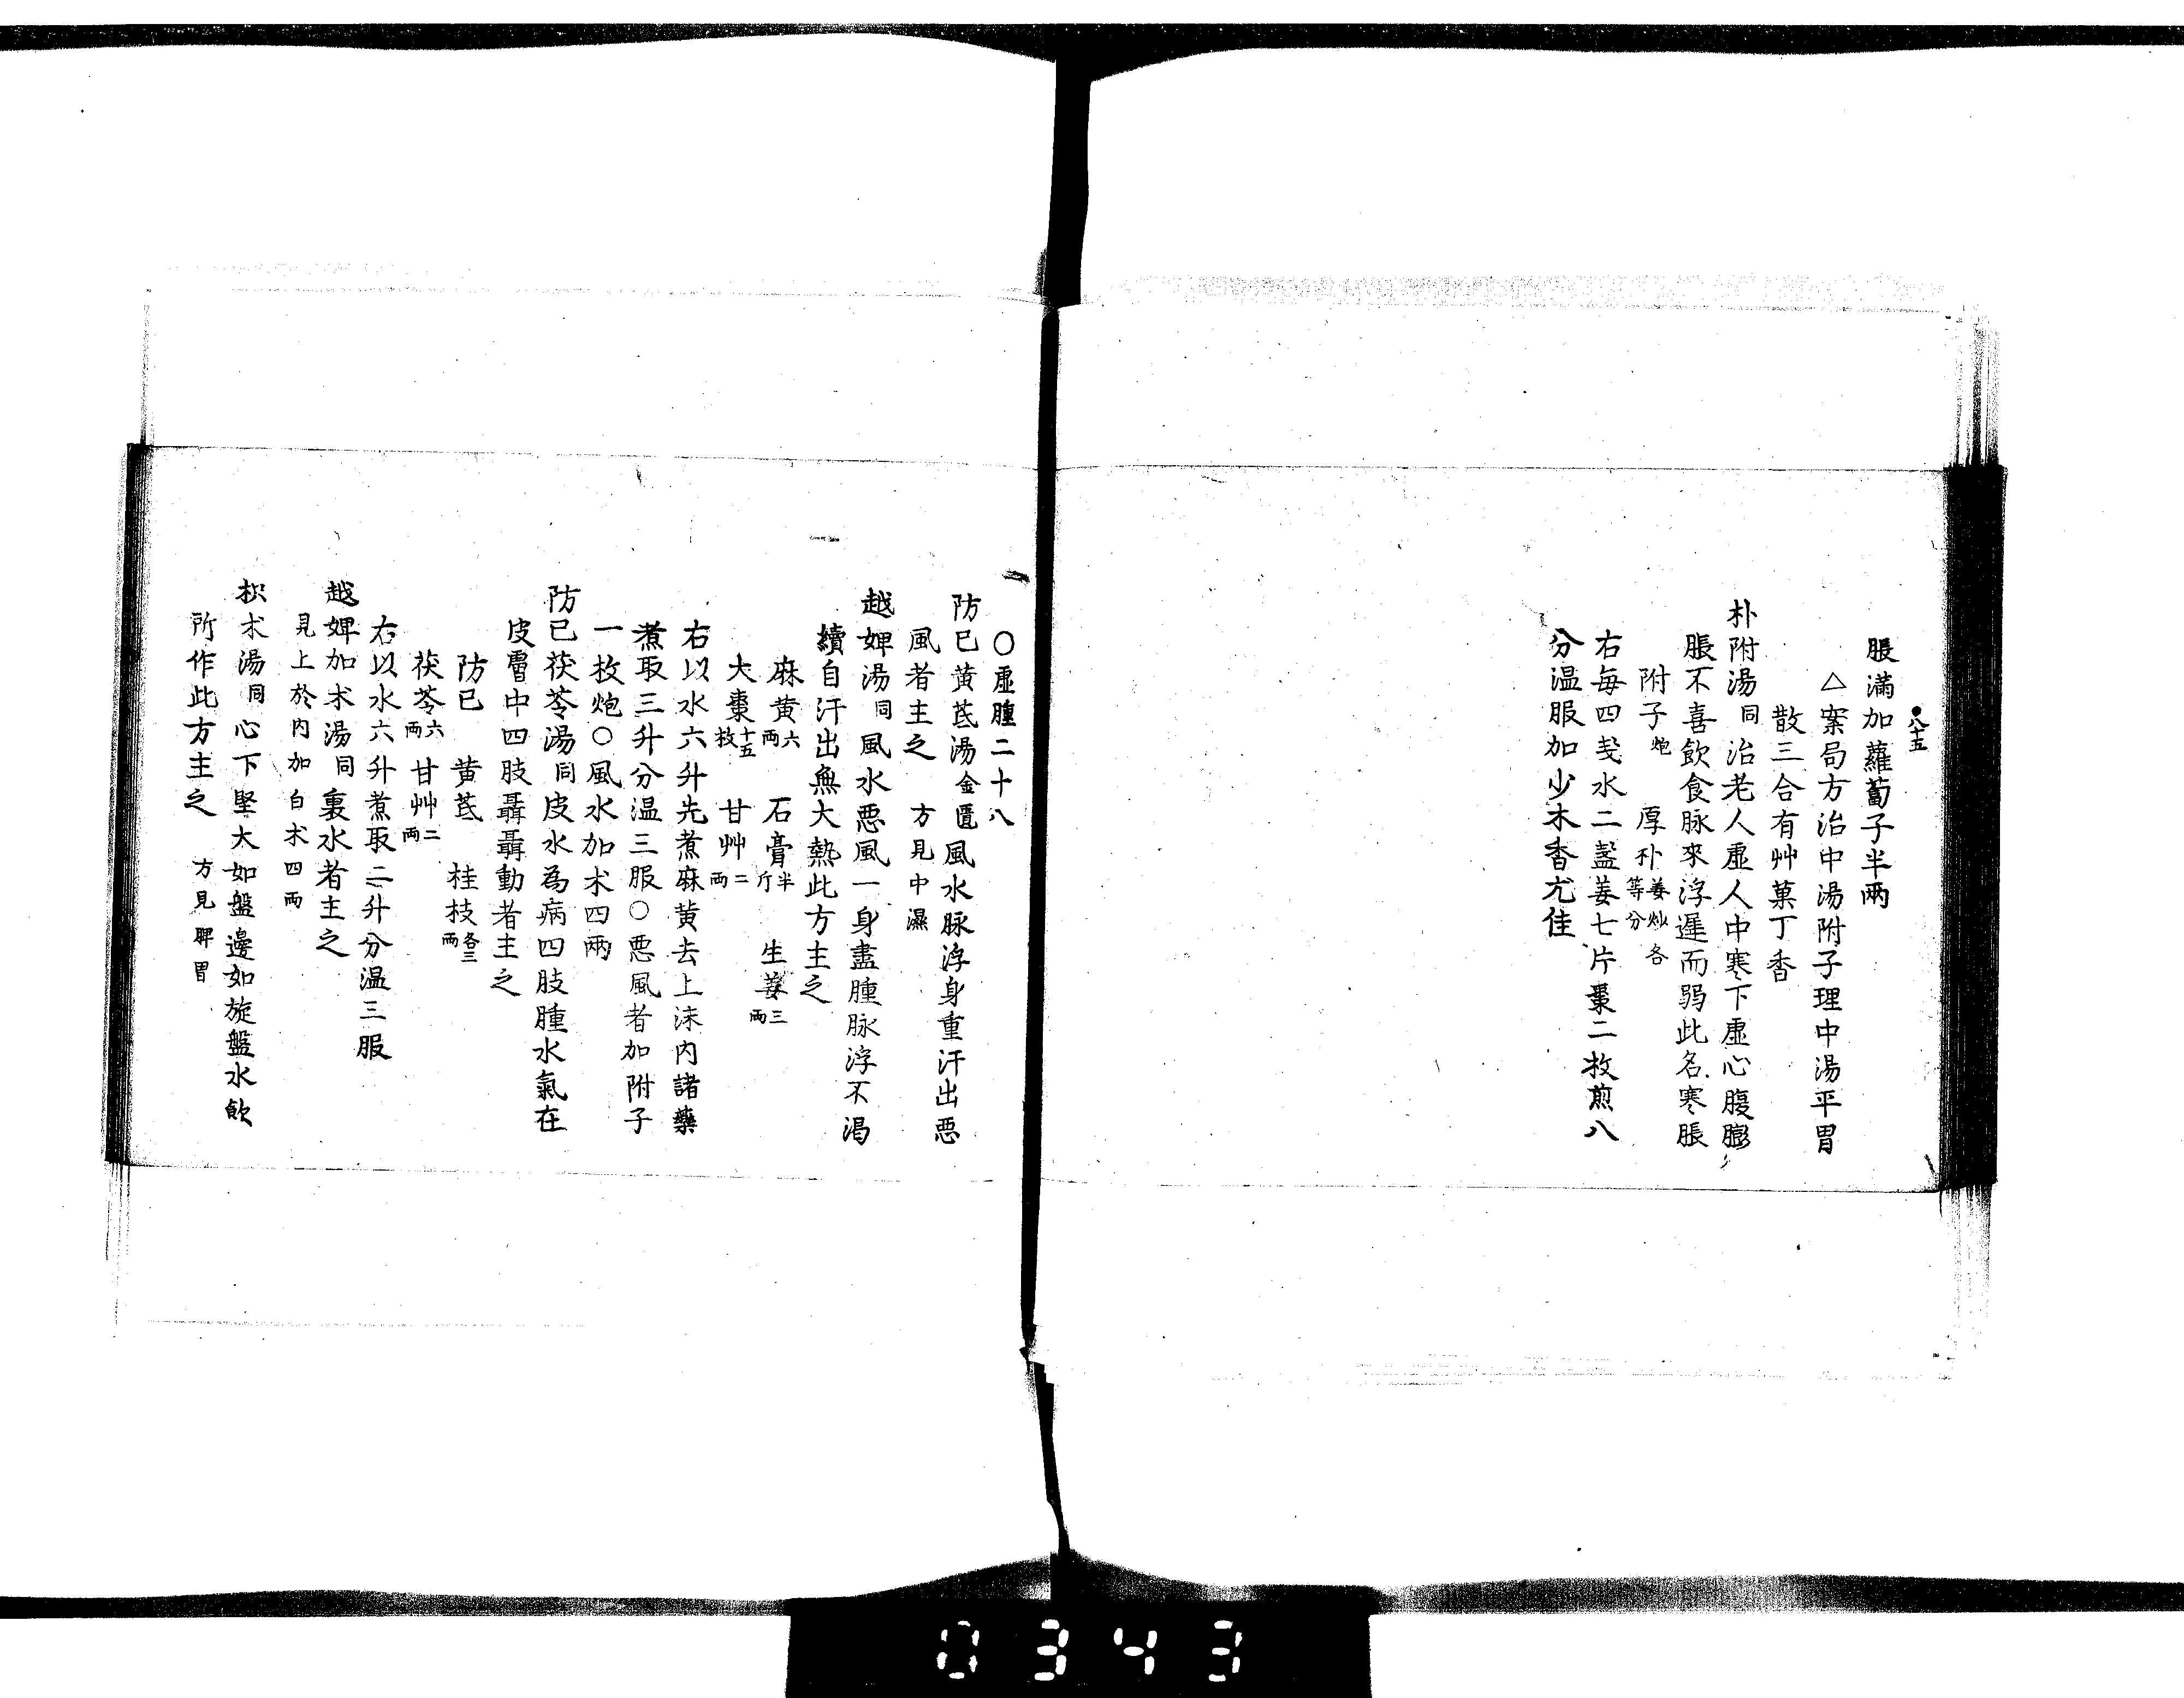 ●八十五
脹滿加蘿蔔子半兩
△案局方治中湯附子理中湯平胃
散三合有艸菓丁香
朴附湯同治老人虛人中寒下虛心腹膨
脹不喜飲食脉來浮遲而弱此名寒脹
附子炮 厚朴姜炒各等分
右每四戔水二盞姜七片棗二枚煎八
分温服加少木香尤佳
○虛腫二十八
防已黃茋湯金匱風水脉浮身重汗出惡
風者主之 方見中濕
越婢湯同風水惡風一身盡腫脉浮不渴
續自汗出無大熱此方主之
麻黃六兩 石膏半斤 生姜三兩
大棗十五枚 甘艸二兩
右以水六升先煮麻黃去上沫內諸藥
煮取三升分温三服○惡風者加附子
一枚炮○風水加朮四兩
防已茯苓湯同皮水為病四肢腫水氣在
皮膚中四肢聶聶動者主之
防已 黃茋 桂枝各三兩
茯苓六兩 甘艸二兩
右以水六升煮取二升分温三服
越婢加朮湯同裏水者主之
見上於內加白朮四兩
枳朮湯同心下堅大如盤邊如旋盤水飲
所作此方主之 方見脾胃
0343